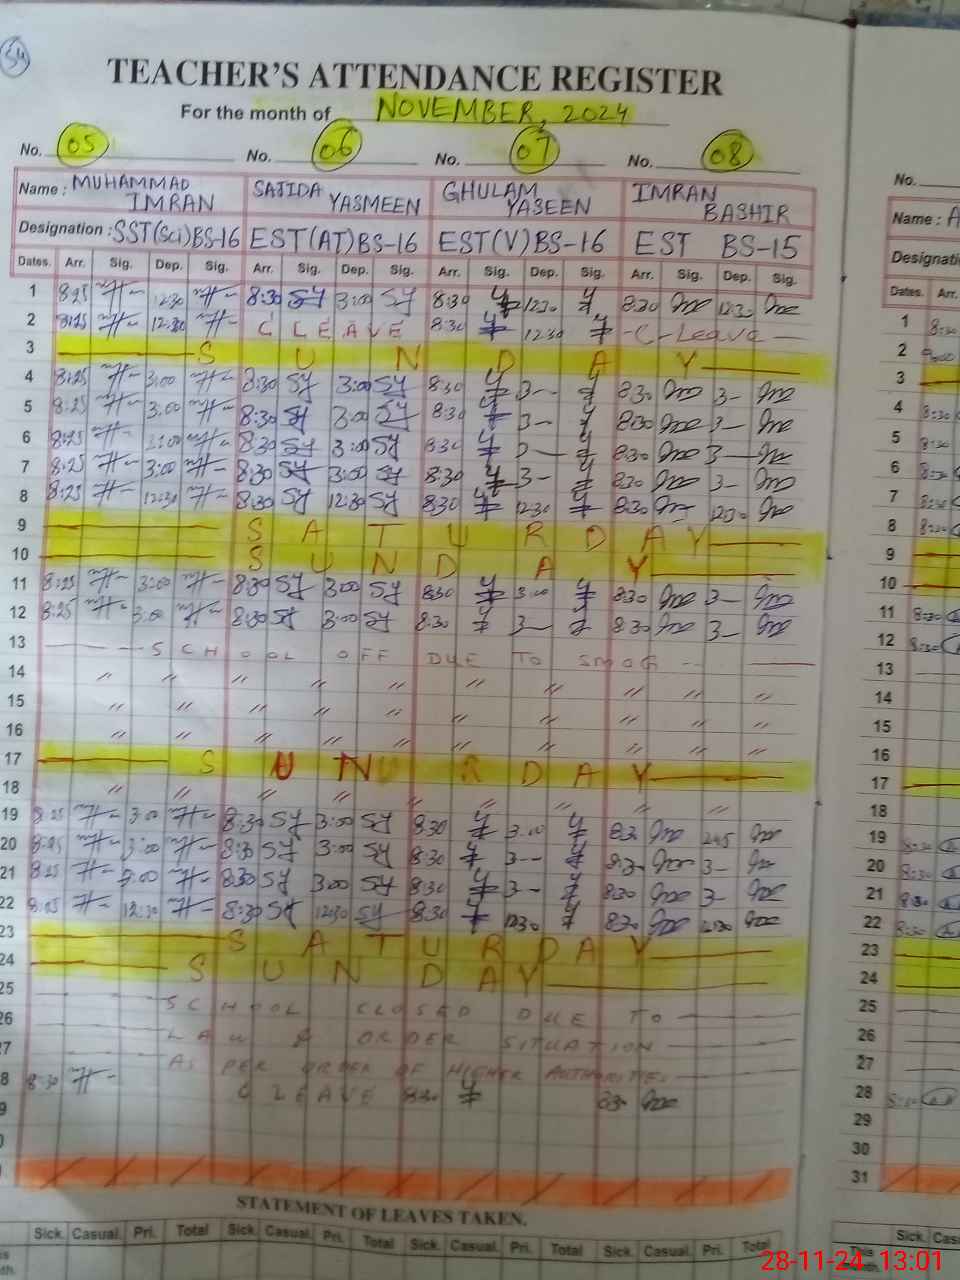 54
TEACHER'S ATTENDANCE REGISTER
For the month of NOVEMBER, 2024
No. 05 No. 06 No. 07 No. 08
Name : MUHAMMAD IMRAN SAJIDA YASMEEN GHULAM YASEEN IMRAN BASHIR
Designation : SST(Sci)BS-16 EST(AT)BS-16 EST(V)BS-16 EST BS-15
Dates. Arr. Sig. Dep. Sig. Arr. Sig. Dep. Sig. Arr. Sig. Dep. Sig. Arr. Sig. Dep. Sig.
1 8:25 12:30 8:30 SY 3:00 SY 8:30 12:30 8:30 12:30
2 8:25 12:30 C LEAVE 8:30 12:30 -C-Leave-
3 SUNDAY
4 8:25 3:00 8:30 SY 3:00 SY 8:30 3- 8:30 3-
5 8:25 3:00 8:30 SY 3:00 SY 8:30 3- 8:30 3-
6 8:25 3:00 8:30 SY 3:00 SY 8:30 3- 8:30 3-
7 8:25 3:00 8:30 SY 3:00 SY 8:30 3- 8:30 3-
8 8:25 12:30 8:30 SY 12:30 SY 8:30 12:30 8:30 12:30
9 SATURDAY
10 SUNDAY
11 8:25 3:00 8:30 SY 3:00 SY 8:30 3:00 8:30 3-
12 8:25 3:00 8:30 SY 3:00 SY 8:30 3- 8:30 3-
13 SCHOOL OFF DUE TO SMOG
14 〃 〃 〃 〃 〃 〃 〃 〃 〃
15 〃 〃 〃 〃 〃 〃 〃 〃 〃
16 〃 〃 〃 〃 〃 〃 〃 〃 〃
17 SUNDAY
18 〃 〃 〃 〃 〃 〃 〃 〃
19 8:25 3:00 8:30 SY 3:00 SY 8:30 3:00 8:30 2:45
20 8:25 3:00 8:30 SY 3:00 SY 8:30 3-- 8:30 3-
21 8:25 3:00 8:30 SY 3:00 SY 8:30 3- 8:30 3-
22 8:25 12:30 8:30 SY 12:30 SY 8:30 12:30 8:30 12:30
23 SATURDAY
24 SUNDAY
25 SCHOOL CLOSED DUE TO
26 LAW & ORDER SITUATION
27 AS PER ORDER OF HIGHER AUTHORITIES
8 8:30 C LEAVE 8:30 8:30
9
STATEMENT OF LEAVES TAKEN.
Sick. Casual. Pri. Total Sick. Casual. Pri. Total Sick. Casual. Pri. Total Sick. Casual. Pri. Total
No.
Name : A
Designati
Dates. Arr.
1 8:30
2 9:00
3
4 8:30
5 8:30
6 8:30
7 8:30
8 8:30
9
10
11 8:30
12 8:30
13
14
15
16
17
18
19 8:30
20 8:30
21 8:30
22 8:30
23
24
25
26
27
28
29
30
31
Sick. Cas
This
28-11-24 13:01